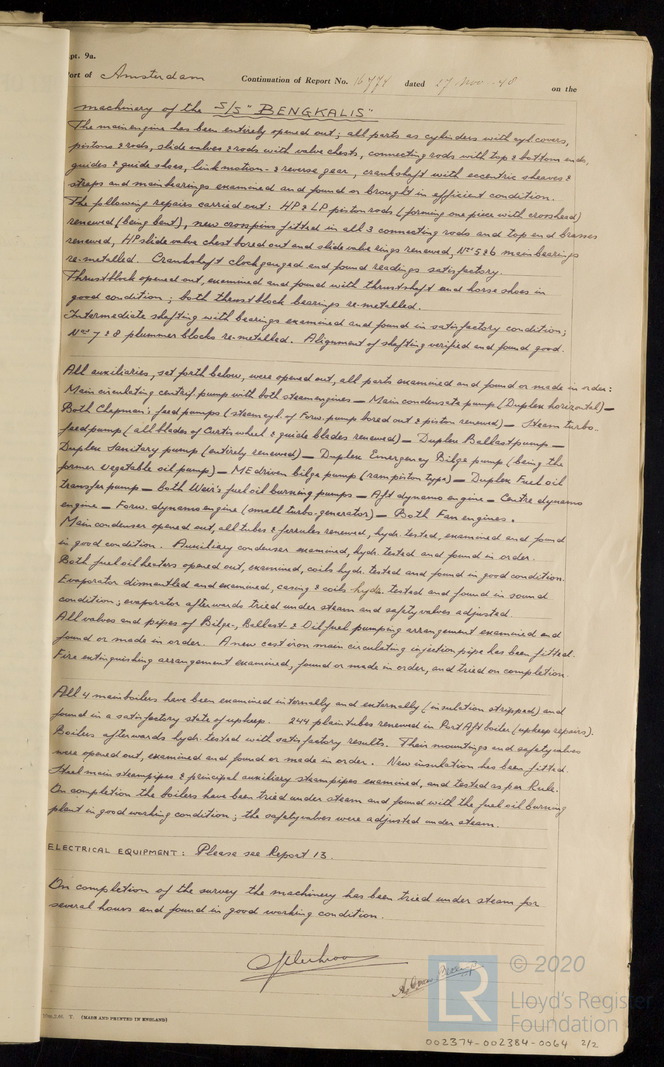 pt. 9a.
ort of Amsterdam Continuation of Report No. 16774 dated 27 Nov. 48 on the
machinery of the S/S "BENGKALIS"
The main engine has been entirely opened out; all parts as cylinders with cyl. covers,
pistons & rods, slide valves & rods with valve chests, connecting rods with top & bottom ends,
guides & guide shoes, link motion & reverse gear, crankshaft with eccentric sheaves &
straps and main bearings examined and found or brought in efficient condition.
The following repairs carried out: HP & LP piston rods (forming one piece with crosshead)
renewed (being bent), new crosspins fitted in all 3 connecting rods and top end brasses
renewed, HP slide valve chest bored out and slide valve rings renewed, Nos 5 & 6 main bearings
re-metalled. Crankshaft clockgauged and found readings satisfactory.
Thrustblock opened out, examined and found with thrustshaft and horse shoes in
good condition; both thrustblock bearings re-metalled.
Intermediate shafting with bearings examined and found in satisfactory condition;
Nos 7 & 8 plummer blocks re-metalled. Alignment of shafting verified and found good.
All auxiliaries, set forth below, were opened out, all parts examined and found or made in order:
Main circulating centrif. pump with both steam engines — Main condensate pump (Duplex horizontal) —
Both Chapman's feed pumps (steam cyl. of Forw. pump bored out & piston renewed) — Steam turbo-
feed pump (all blades of Curtis wheel & guide blades renewed) — Duplex Ballast pump —
Duplex Sanitary pump (entirely renewed) — Duplex Emergency Bilge pump (being the
former vegetable oil pump) — ME driven bilge pump (ram piston type) — Duplex Fuel oil
transfer pump — both Weir's fuel oil burning pumps — Aft dynamo engine — Centre dynamo
engine — Forw. dynamo engine (small turbo-generator) — Both Fan engines.
Main condenser opened out, all tubes & ferrules renewed, hydr. tested, examined and found
in good condition. Auxiliary condenser examined, hydr. tested and found in order.
Both fuel oil heaters opened out, examined, coils hydr. tested and found in good condition.
Evaporator dismantled and examined, casing & coils hydr. tested and found in sound
condition; evaporator afterwards tried under steam and safety valves adjusted.
All valves and pipes of Bilge, Ballast- & Oilfuel pumping arrangement examined and
found or made in order. A new cast iron main circulating injection pipe has been fitted.
Fire extinguishing arrangement examined, found or made in order, and tried on completion.
All 4 main boilers have been examined internally and externally (insulation stripped) and
found in a satisfactory state of upkeep. 244 plain tubes renewed in Port Aft boiler (upkeep repairs).
Boilers afterwards hydr. tested with satisfactory results. Their mountings and safety valves
were opened out, examined and found or made in order. New insulation has been fitted.
Steel main steampipes & principal auxiliary steampipes examined, and tested as per Rule.
On completion the boilers have been tried under steam and found with the fuel oil burning
plant in good working condition; the safety valves were adjusted under steam.
ELECTRICAL EQUIPMENT: Please see Report 13.
On completion of the survey the machinery has been tried under steam for
several hours and found in good working condition.
T. (MADE AND PRINTED IN ENGLAND)
LR © 2020
Lloyd's Register
Foundation
002374-002384-0064 2/2